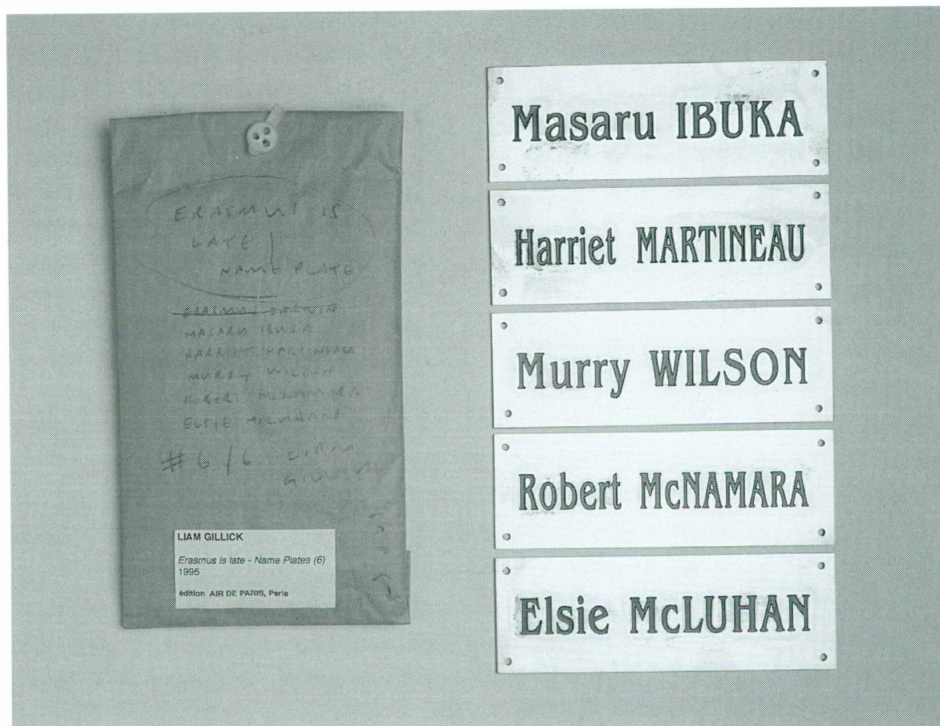 ERASMUS IS
LATE
NAME PLATE
ERASMUS DARWIN
MASARU IBUKA
HARRIET MARTINEAU
MURRY WILSON
ROBERT MCNAMARA
ELSIE MCLUHAN
#6/6 LIAM
GILLICK
LIAM GILLICK
Erasmus is late - Name Plates (6)
1995
édition AIR DE PARIS, Paris
Masaru IBUKA
Harriet MARTINEAU
Murry WILSON
Robert McNAMARA
Elsie McLUHAN